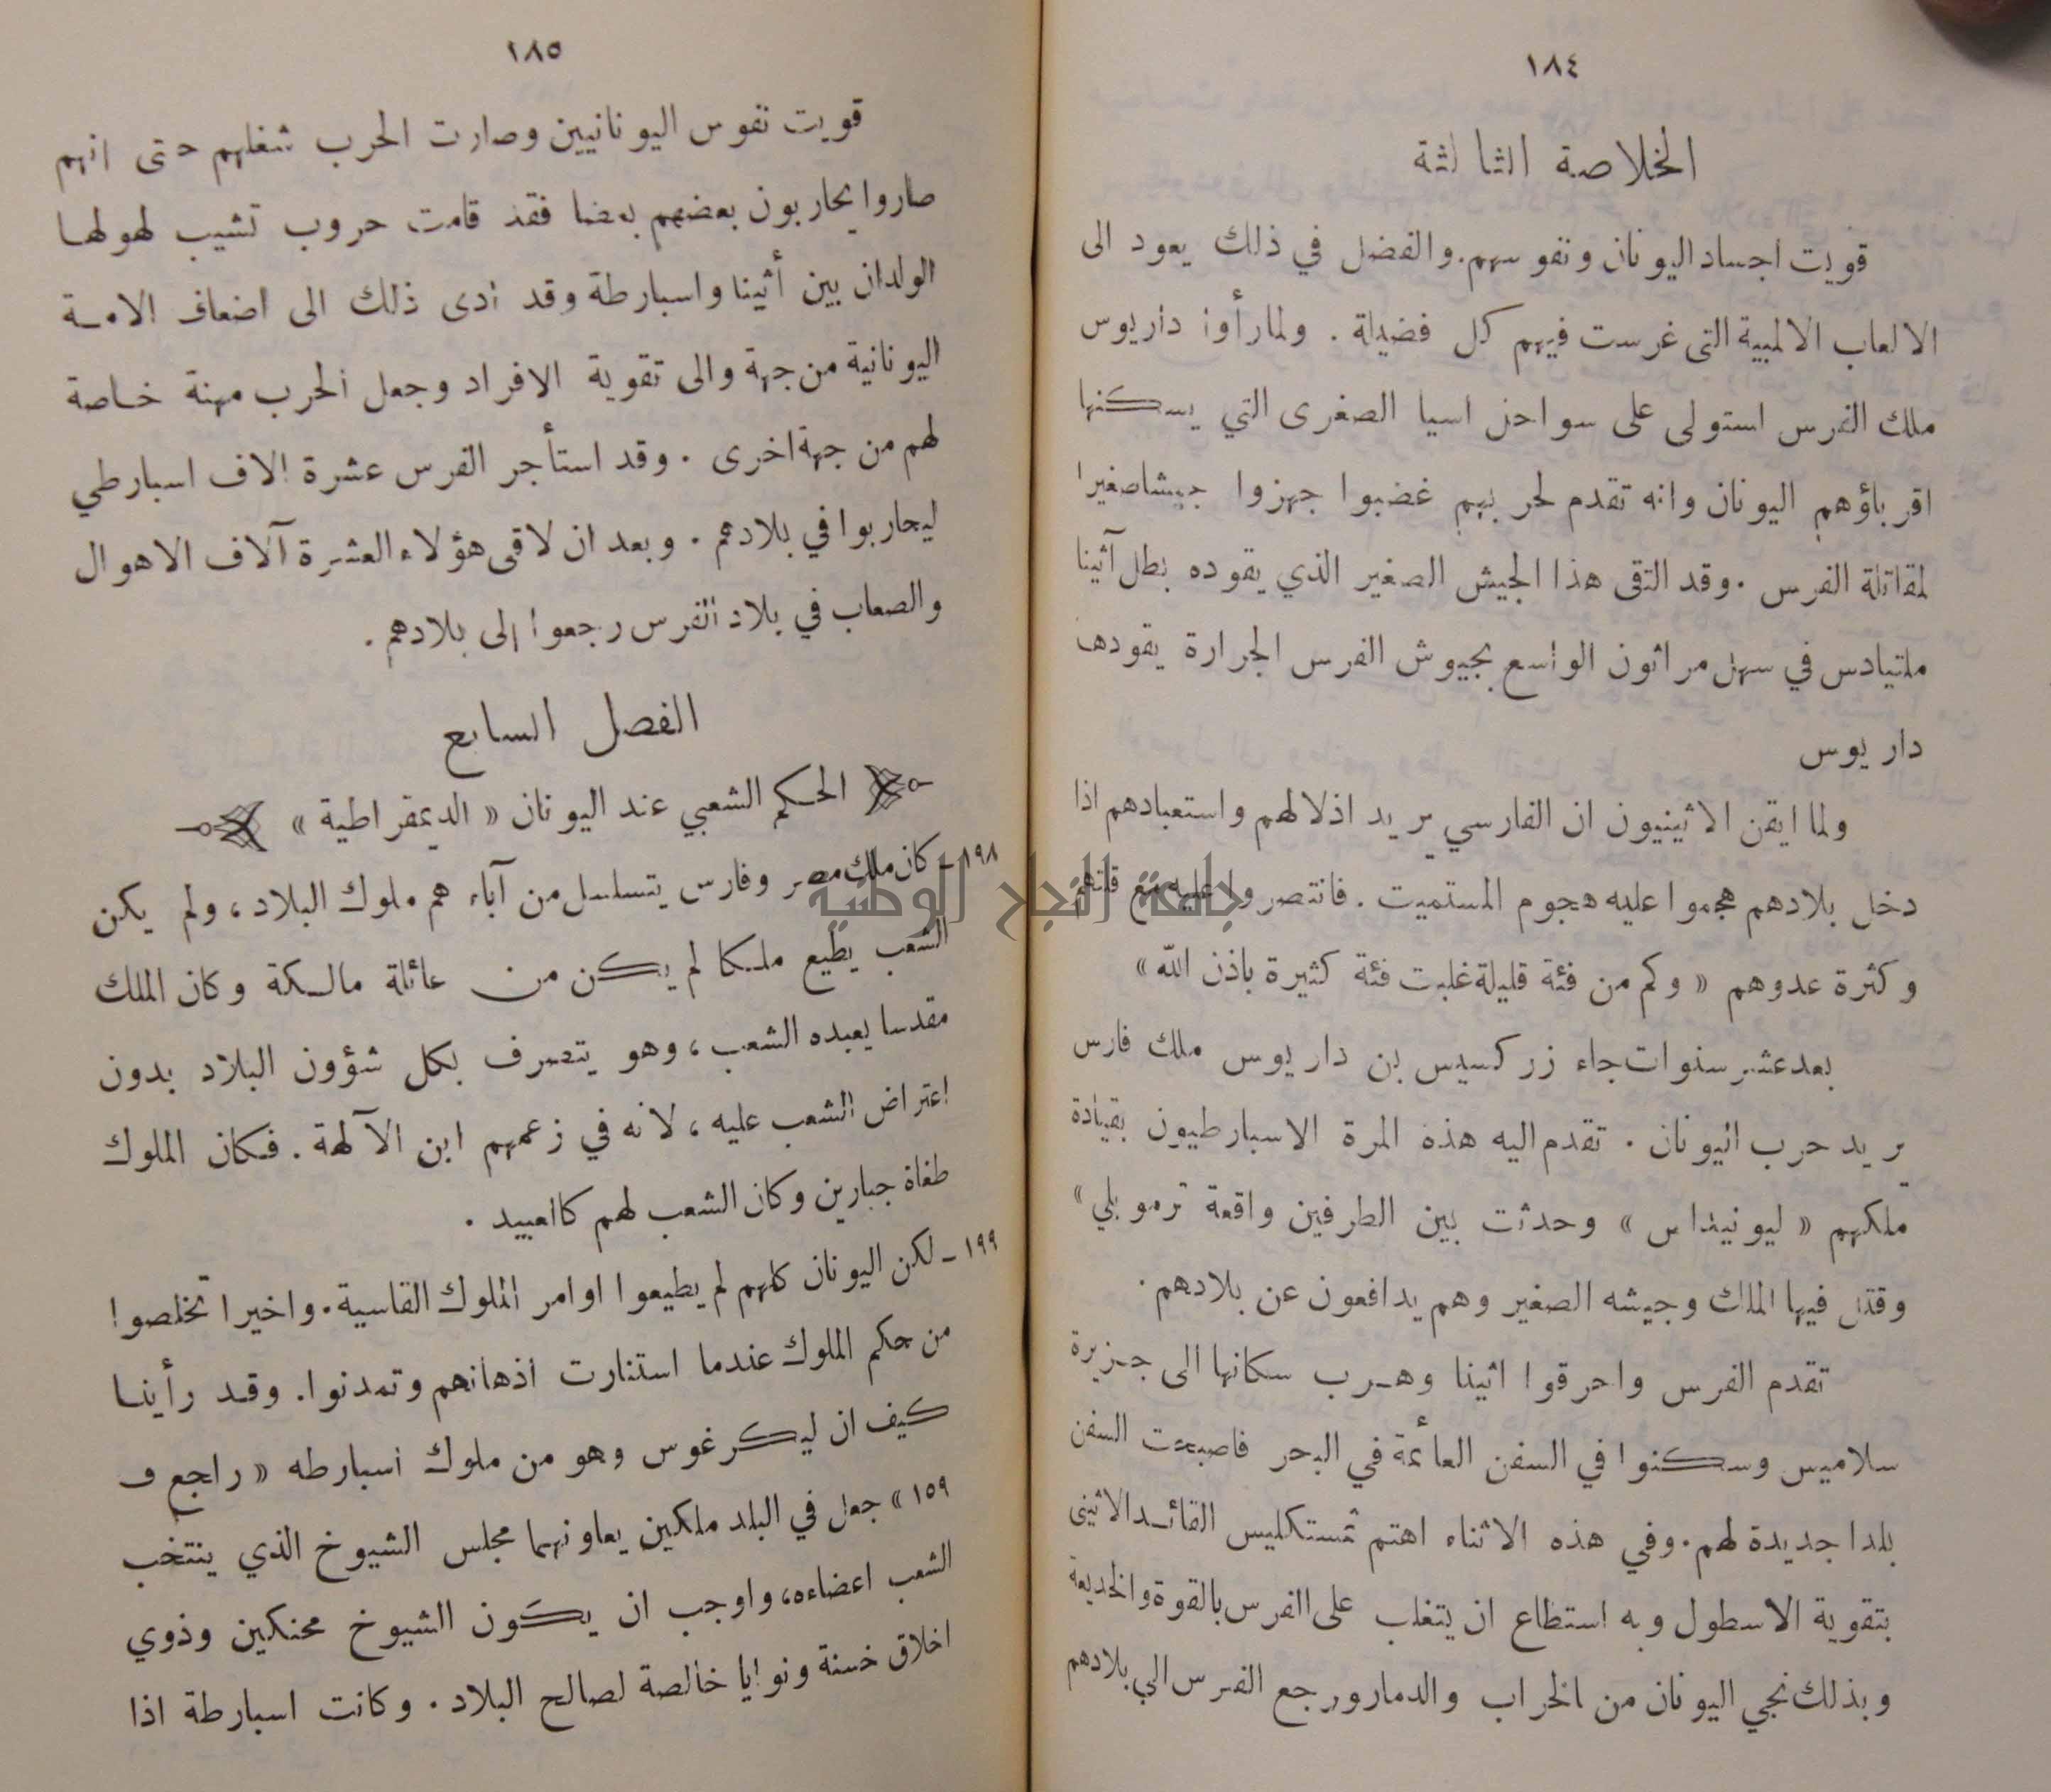 ١٨٤
الخلاصة الثالثة
قويت اجساد اليونان ونفوسهم. والفضل في ذلك يعود الى
الالعاب الالمبية التى غرست فيهم كل فضيلة . ولما رأوا داريوس
ملك الفرس استولى على سواحل اسيا الصغرى التي يسكنها
اقرباؤهم اليونان وانه تقدم لحربهم غضبوا جهزوا جيشا صغيرا
لمقاتلة الفرس . وقد التقى هذا الجيش الصغير الذي يقوده بطل آثينا
ملتيادس في سهل مراثون الواسع بجيوش الفرس الجرارة يقودها
داريوس
ولما ايقن الاثينيون ان الفارسي يريد اذلالهم واستعبادهم اذا
دخل بلادهم هجموا عليه هجوم المستميت . فانتصروا عليه مع قلتهم
وكثرة عدوهم « وكم من فئة قليلة غلبت فئة كثيرة باذن الله »
بعد عشر سنوات جاء زركسيس بن داريوس ملك فارس
يريد حرب اليونان . تقدم اليه هذه المرة الاسبارطيون بقيادة
ملكهم « ليونيداس » وحدثت بين الطرفين واقعة ترموبلي »
وقتل فيها الملك وجيشه الصغير وهم يدافعون عن بلادهم .
تقدم الفرس واحرقوا اثينا وهرب سكانها الى جزيرة
سلاميس وسكنوا في السفن العائمة في البحر فاصبحت السفن
بلدا جديدة لهم . وفي هذه الاثناء اهتم تمستكليس القائد الاثينى
بتقوية الاسطول وبه استطاع ان يتغلب على الفرس بالقوة والخديعة
وبذلك نجي اليونان من الخراب والدمار ورجع الفرس الي بلادهم
١٨٥
قويت نفوس اليونانيين وصارت الحرب شغلهم حتى انهم
صاروا يحاربون بعضهم بعضا فقد قامت حروب تشيب لهولها
الولدان بين أثينا واسبارطة وقد ادى ذلك الى اضعاف الامة
اليونانية من جهة والى تقوية الافراد وجعل الحرب مهنة خاصة
لهم من جهة اخرى . وقد استأجر الفرس عشرة الاف اسبارطي
ليحاربوا في بلادهم . وبعد ان لاقى هؤلاء العشرة آلاف الاهوال
والصعاب في بلاد الفرس رجعوا إلى بلادهم .
الفصل السابع
الحكم الشعبي عند اليونان « الديمقراطية »
١٩٨ ــ كان ملك مصر وفارس يتسلسل من آباء هم ملوك البلاد ، ولم يكن
الشعب يطيع ملكا لم يكن من عائلة مالكة وكان الملك
مقدسا يعبده الشعب ، وهو يتصرف بكل شؤون البلاد بدون
اعتراض الشعب عليه ، لانه في زعمهم ابن الآلهة . فكان الملوك
طغاة جبارين وكان الشعب لهم كالعبيد .
١٩٩ ــ لكن اليونان كلهم لم يطيعوا اوامر الملوك القاسية . واخيرا تخلصوا
من حكم الملوك عندما استنارت اذهانهم وتمدنوا. وقد رأينا
كيف ان ليكرغوس وهو من ملوك اسبارطه « راجع ف
١٥٩ » جعل في البلد ملكين يعاونهما مجلس الشيوخ الذي ينتخب
الشعب اعضاءه ، واوجب ان يكون الشيوخ محنكين وذوي
اخلاق حسنة ونوايا خالصة لصالح البلاد . وكانت اسبارطة اذا
جامعة النجاح الوطنية